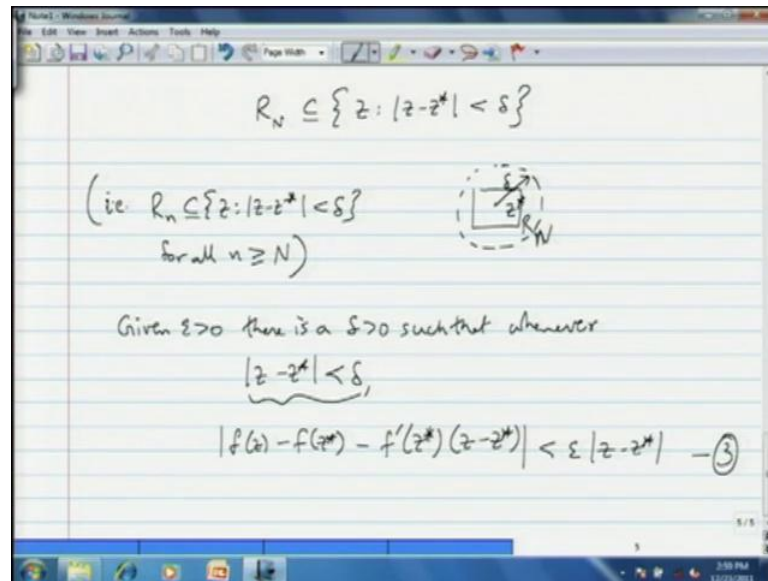 Note1 - Windows Journal
File Edit View Insert Actions Tools Help
Page Width
R_N ⊆ { z : |z-z*| < δ }
(ie. R_n ⊆ { z : |z-z*| < δ }
for all n ≥ N)
δ
z*
R_N
Given ε>0 there is a δ>0 such that whenever
|z - z*| < δ,
|f(z) - f(z*) - f'(z*) (z-z*)| < ε |z-z*| - ③
5/5
2:59 PM